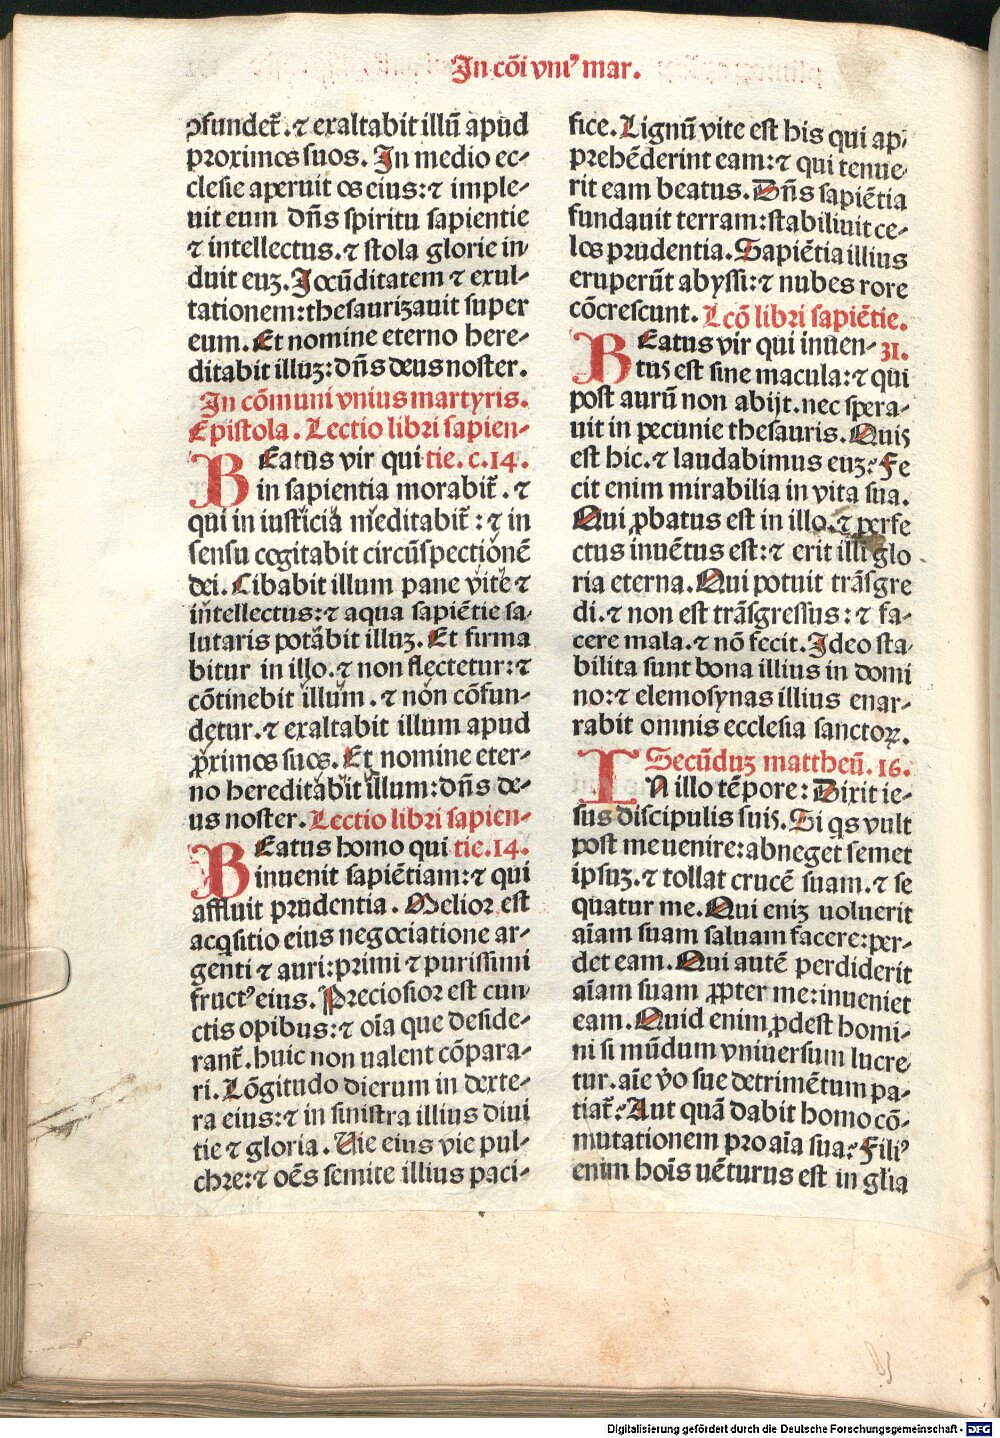 In cõi vniꝰ mar.
ꝯfundet᷑. ⁊ exaltabit illũ apud
proximos suos. In medio ec-
clesie aperuit os eius: ⁊ imple-
uit eum dñs spiritu sapientie
⁊ intellectus. ⁊ stola glorie in
duit euʒ. Iocũditatem ⁊ exul-
tationem: thesaurizauit super
eum. Et nomine eterno here-
ditabit illuʒ: dñs deus noster.
In cõmuni vnius martyris.
Epistola. Lectio libri sapien-
BEatus vir qui tie. c. 14.
in sapientia morabit᷑. ⁊
qui in iusticia meditabit᷑: ⁊ in
sensu cogitabit circũspectionẽ
dei. Cibabit illum pane vite ⁊
intellectus: ⁊ aqua sapiẽtie sa-
lutaris potabit illuʒ. Et firma
bitur in illo. ⁊ non flectetur: ⁊
cõtinebit illum. ⁊ non cõfun-
detur. ⁊ exaltabit illum apud
ꝓximos suos. Et nomine eter-
no hereditabit illum: dñs de-
us noster. Lectio libri sapien-
BEatus homo qui tie. 14.
inuenit sapiẽtiam: ⁊ qui
affluit prudentia. Melior est
acq̃sitio eius negociatione ar-
genti ⁊ auri: primi ⁊ purissimi
fructꝰ eius. Preciosior est cun
ctis opibus: ⁊ oĩa que deside-
rant᷑. huic non ualent cõpara-
ri. Lõgitudo dierum in dexte-
ra eius: ⁊ in sinistra illius diui
tie ⁊ gloria. Uie eius vie pul-
chre: ⁊ oẽs semite illius paci-
fice. Lignũ vite est his qui ap-
prehẽderint eam: ⁊ qui tenue-
rit eam beatus. Dñs sapiẽtia
fundauit terram: stabiliuit ce-
los prudentia. Sapiẽtia illius
eruperũt abyssi: ⁊ nubes rore
cõcrescunt. Lcõ libri sapiẽtie.
BEatus vir qui inuen- 31.
tus est sine macula: ⁊ qui
post aurũ non abijt. nec spera-
uit in pecunie thesauris. Quis
est hic. ⁊ laudabimus euʒ? Fe
cit enim mirabilia in vita sua.
Qui ꝓbatus est in illo. ⁊ perfe
ctus inuẽtus est: ⁊ erit illi glo
ria eterna. Qui potuit trãsgre
di. ⁊ non est trãsgressus: ⁊ fa-
cere mala. ⁊ nõ fecit. Ideo sta-
bilita sunt bona illius in domi
no: ⁊ elemosynas illius enar-
rabit omnis ecclesia sanctoꝝ.
Secũduʒ mattheũ. 16.
IN illo tẽpore: Dixit ie-
sus discipulis suis. Si qs vult
post me uenire: abneget semet
ipsuʒ. ⁊ tollat crucẽ suam. ⁊ se
quatur me. Qui eniʒ uoluerit
aĩam suam saluam facere: per-
det eam. Qui autẽ perdiderit
aĩam suam ꝓpter me: inueniet
eam. Quid enim ꝓdest homi-
ni si mũdum vniuersum lucre
tur. aĩe v̾o sue detrimẽtum pa-
tiat᷑? Aut quã dabit homo cõ-
mutationem pro aĩa sua? Filiꝰ
enim hoĩs uẽturus est in gl̃ia
Digitalisierung gefördert durch die Deutsche Forschungsgemeinschaft - DFG